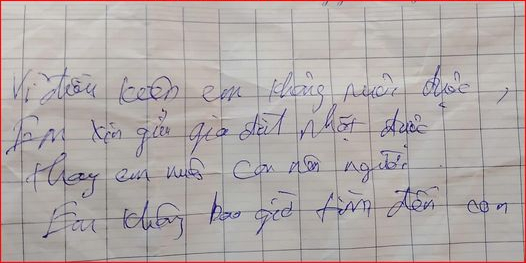 Vì điều kiện em không nuôi được,
Em xin gửu gia đình nhặt được
thay em nuôi con nên người
Em không bao giờ tìm đến con